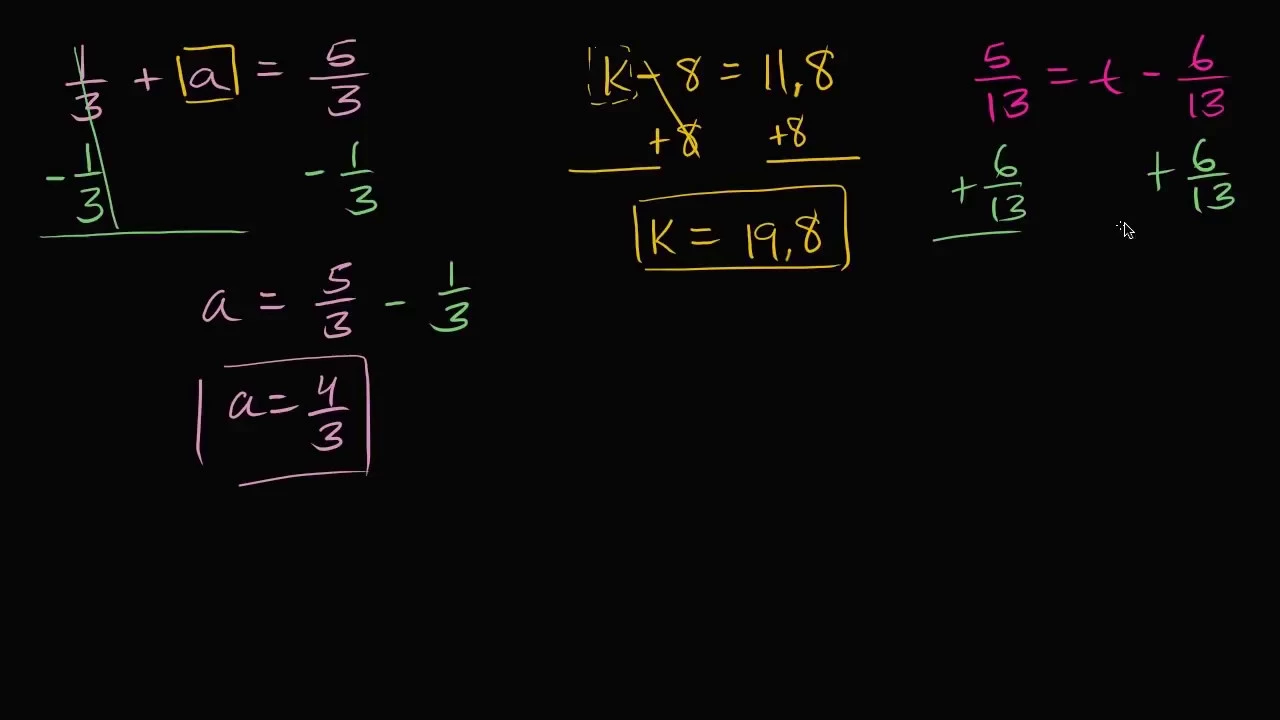 1/3 + a = 5/3
- 1/3 - 1/3
a = 5/3 - 1/3
a = 4/3
K - 8 = 11,8
+ 8 +8
K = 19,8
5/13 = t - 6/13
+ 6/13 + 6/13